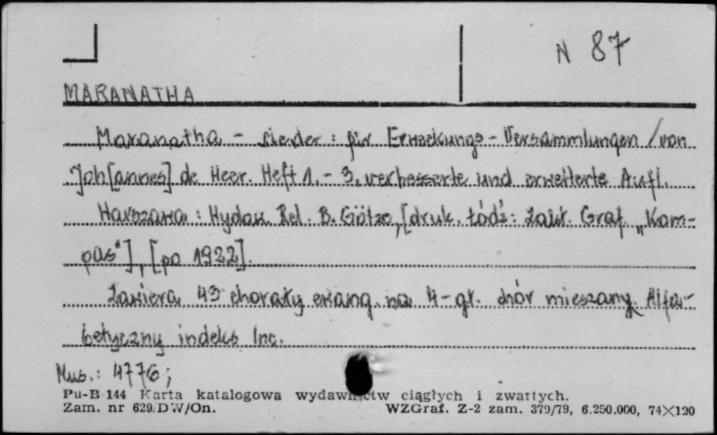 N 87
MARANATHA
Maranatha - Lieder : für Erweckungs - Versammlungen / von
Joh[annes] de Heer. Heft 1. - 3. verbesserte und erweiterte Aufl.
Warszawa : Wydaw. Rel. B. Götze, [druk. Łódź : Zakł. Graf. „Kom-
pas"], [po 1922].
Zawiera 43 chorały ewang. na 4-gł. chór mieszany. Alfa-
betyczny indeks Inc.
Mus.: 4776;
Pu-B 144 Karta katalogowa wydawnictw ciągłych i zwartych.
Zam. nr 629/DW/On. WZGraf. Z-2 zam. 379/79, 6.250.000, 74×120